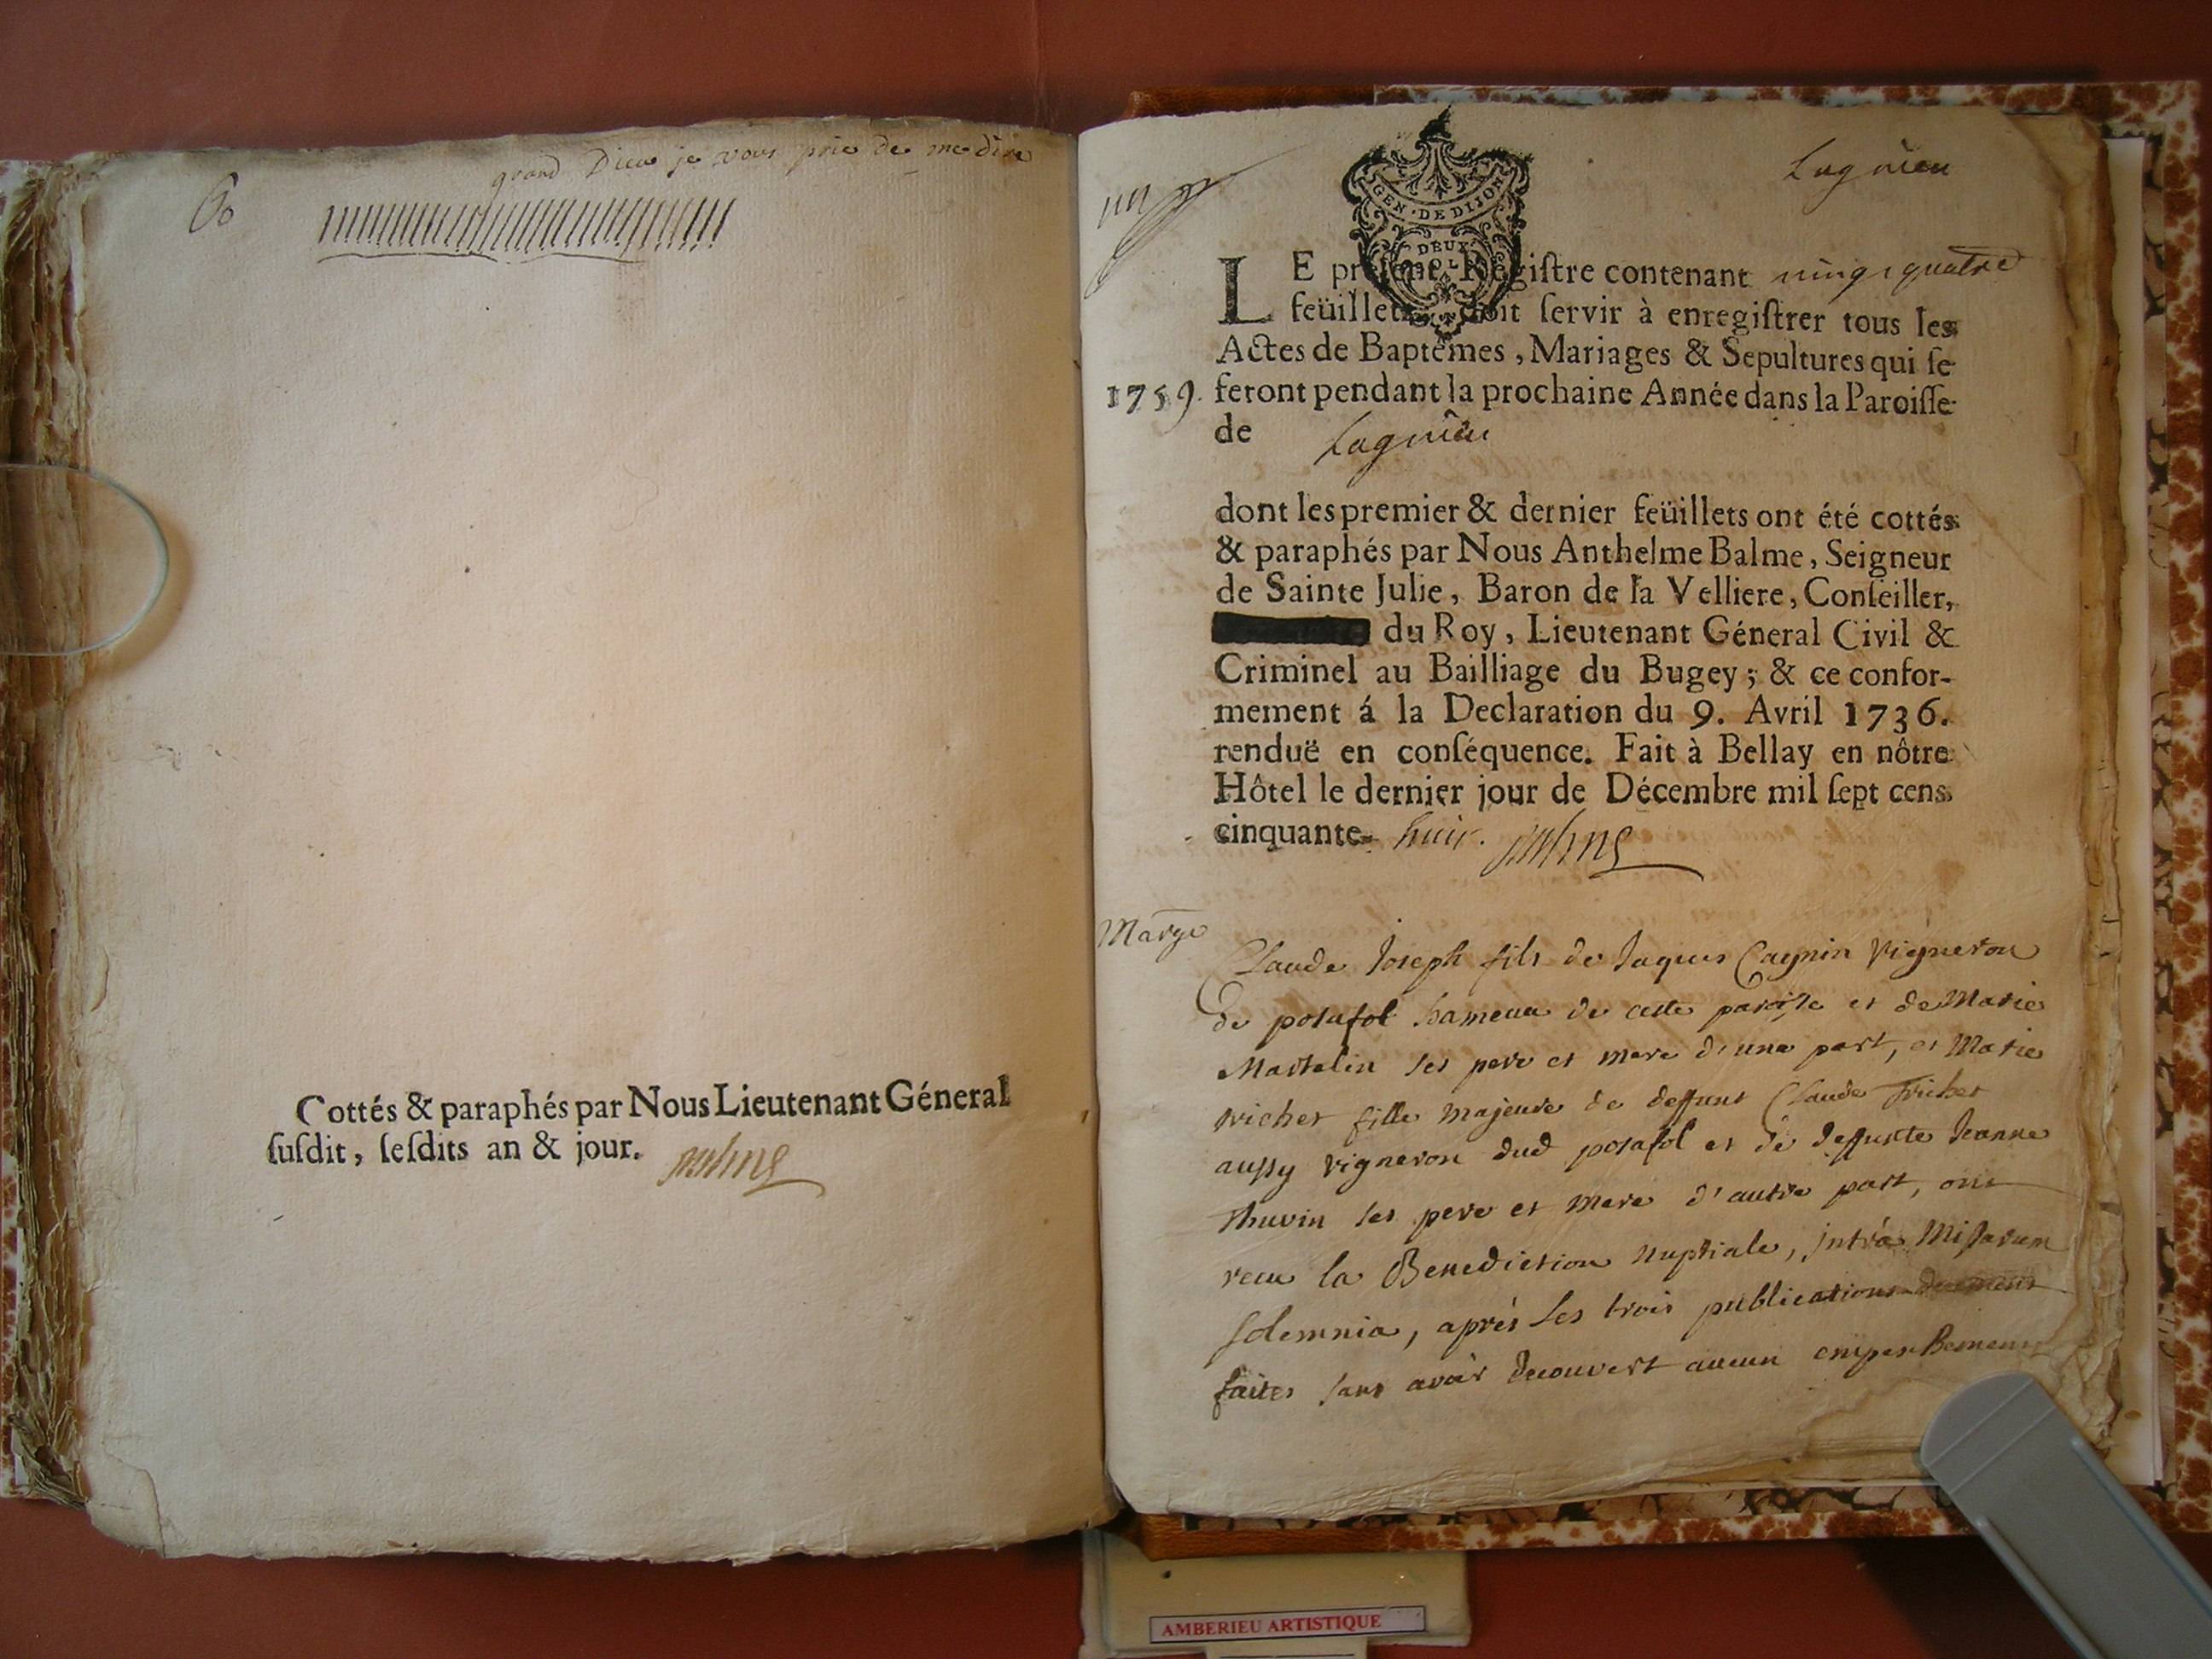 grand Dieu je vous prie de me dire
60
Cottés & paraphés par Nous Lieutenant Géneral
ſuſdit, leſdits an & jour.
Lagnieu
GEN · DE DIJON
DEUX
SOLS
LE préſent Regiſtre contenant vingt quatre
feüillets, doit ſervir à enregiſtrer tous les
Actes de Baptêmes, Mariages & Sepultures qui ſe
1759. feront pendant la prochaine Année dans la Paroiſſe
de Lagnieu
dont les premier & dernier feüillets ont été cottés
& paraphés par Nous Anthelme Balme, Seigneur
de Sainte Julie, Baron de la Velliere, Conſeiller,
du Roy, Lieutenant Géneral Civil &
Criminel au Bailliage du Bugey; & ce confor-
mement á la Declaration du 9. Avril 1736.
renduë en conſéquence. Fait à Bellay en nôtre
Hôtel le dernier jour de Décembre mil ſept cens
cinquante- huit.
Marge
Claude Joseph fils de Jaques Cagnin Vigneron
de posafol hameau de cette paroisse et de Marie
Martelin ses pere et mere d'une part, et Marie
trichet fille majeure de deffunt Claude Trichet
aussy vigneron dud posafol et de deffuncte Jeanne
thuvin ses pere et mere d'autre part, ont
recu la Benediction nuptiale, intrà Missarum
solemnia, après les trois publications duement
faites sans avoir decouvert aucun empechement
AMBERIEU ARTISTIQUE